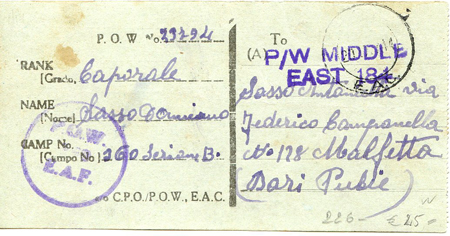 P. O. W No. 23494
RANK
[Grado] Caporale
NAME
[Nome] Sasso Damiano
CAMP No.
(Campo No) 360 Serian B.
P.O.W
E.A.F.
C.P.O./P.O.W., E.A.C.
To
(A)
P/W MIDDLE
EAST 184
E.A.C.
Sasso via
Federico Campanella
No 128 Molfetta
(Bari Puglie)
226 -
€ 25 -